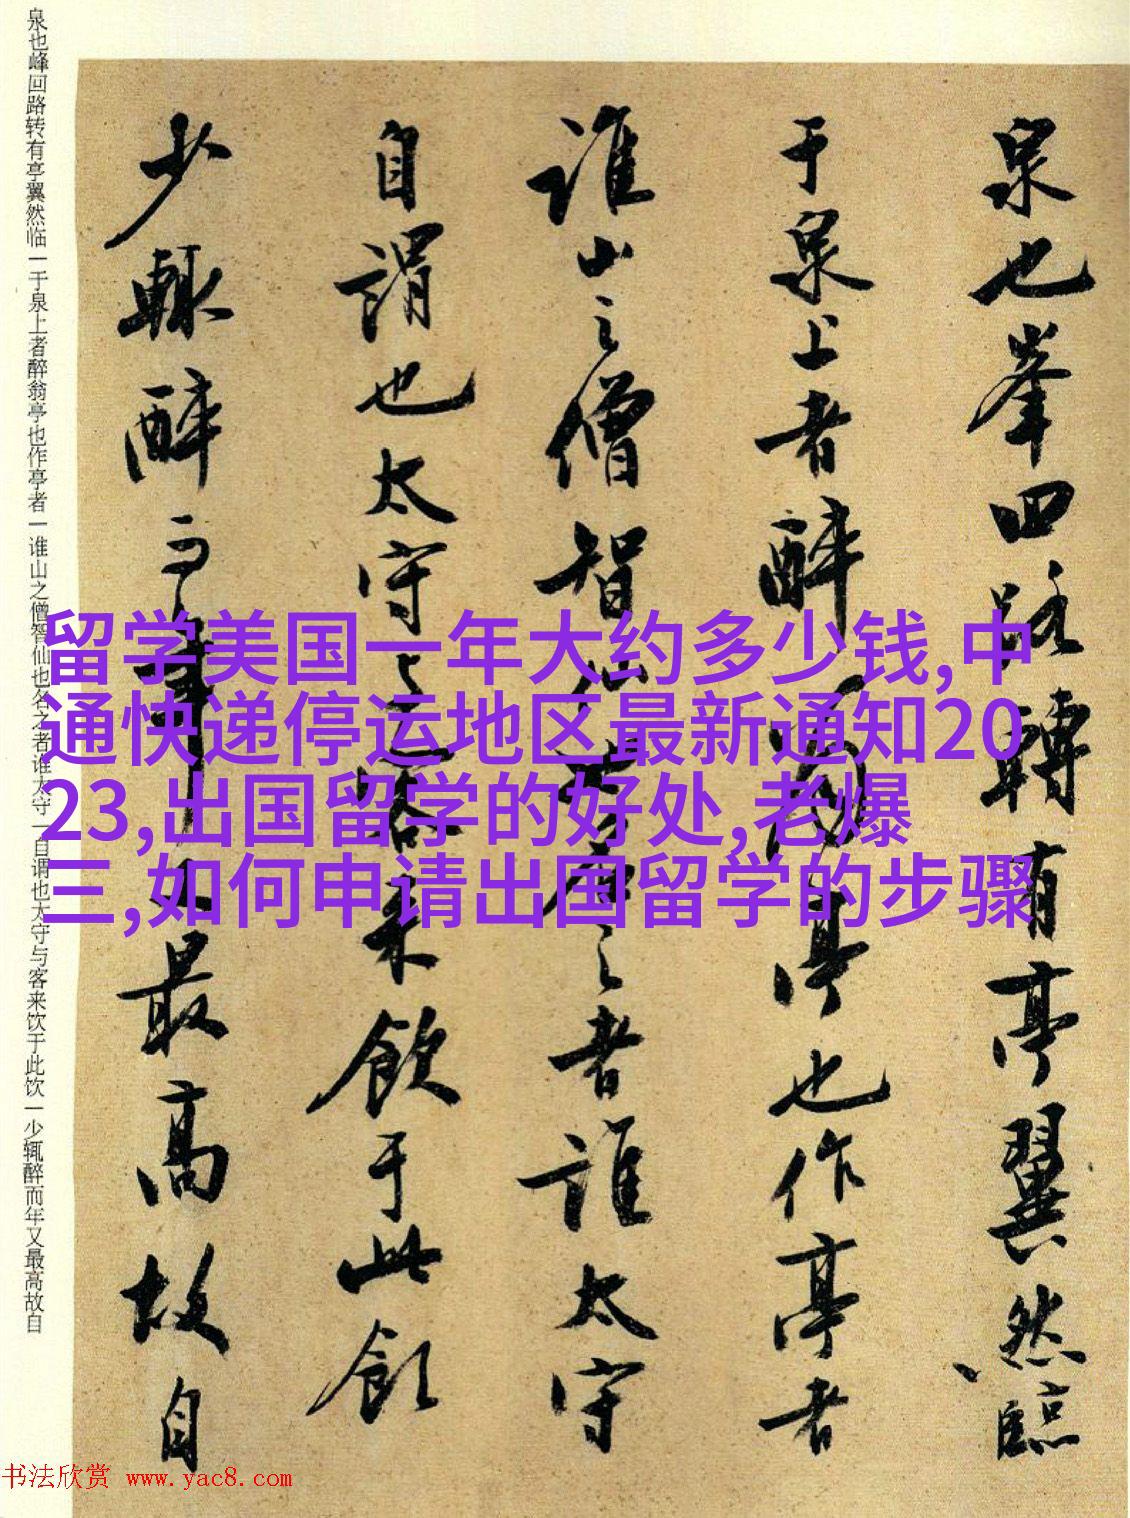 泉也峯回路轉有亭翼然臨
于泉上者醉翁亭也作亭者
誰山之僧智仙也名之者誰太守
自謂也太守与客来飲于此飲
少輒醉而年又最高故自
泉也峰回路转有亭翼然临一于泉上者醉翁亭也作亭者一谁山之僧智仙也名之者谁太守一自谓也太守与客来饮于此饮一少辄醉而年又最高故自
留学美国一年大约多少钱,中
通快递停运地区最新通知20
23,出国留学的好处,老爆
三,如何申请出国留学的步骤
书法欣赏 www.yac8.com